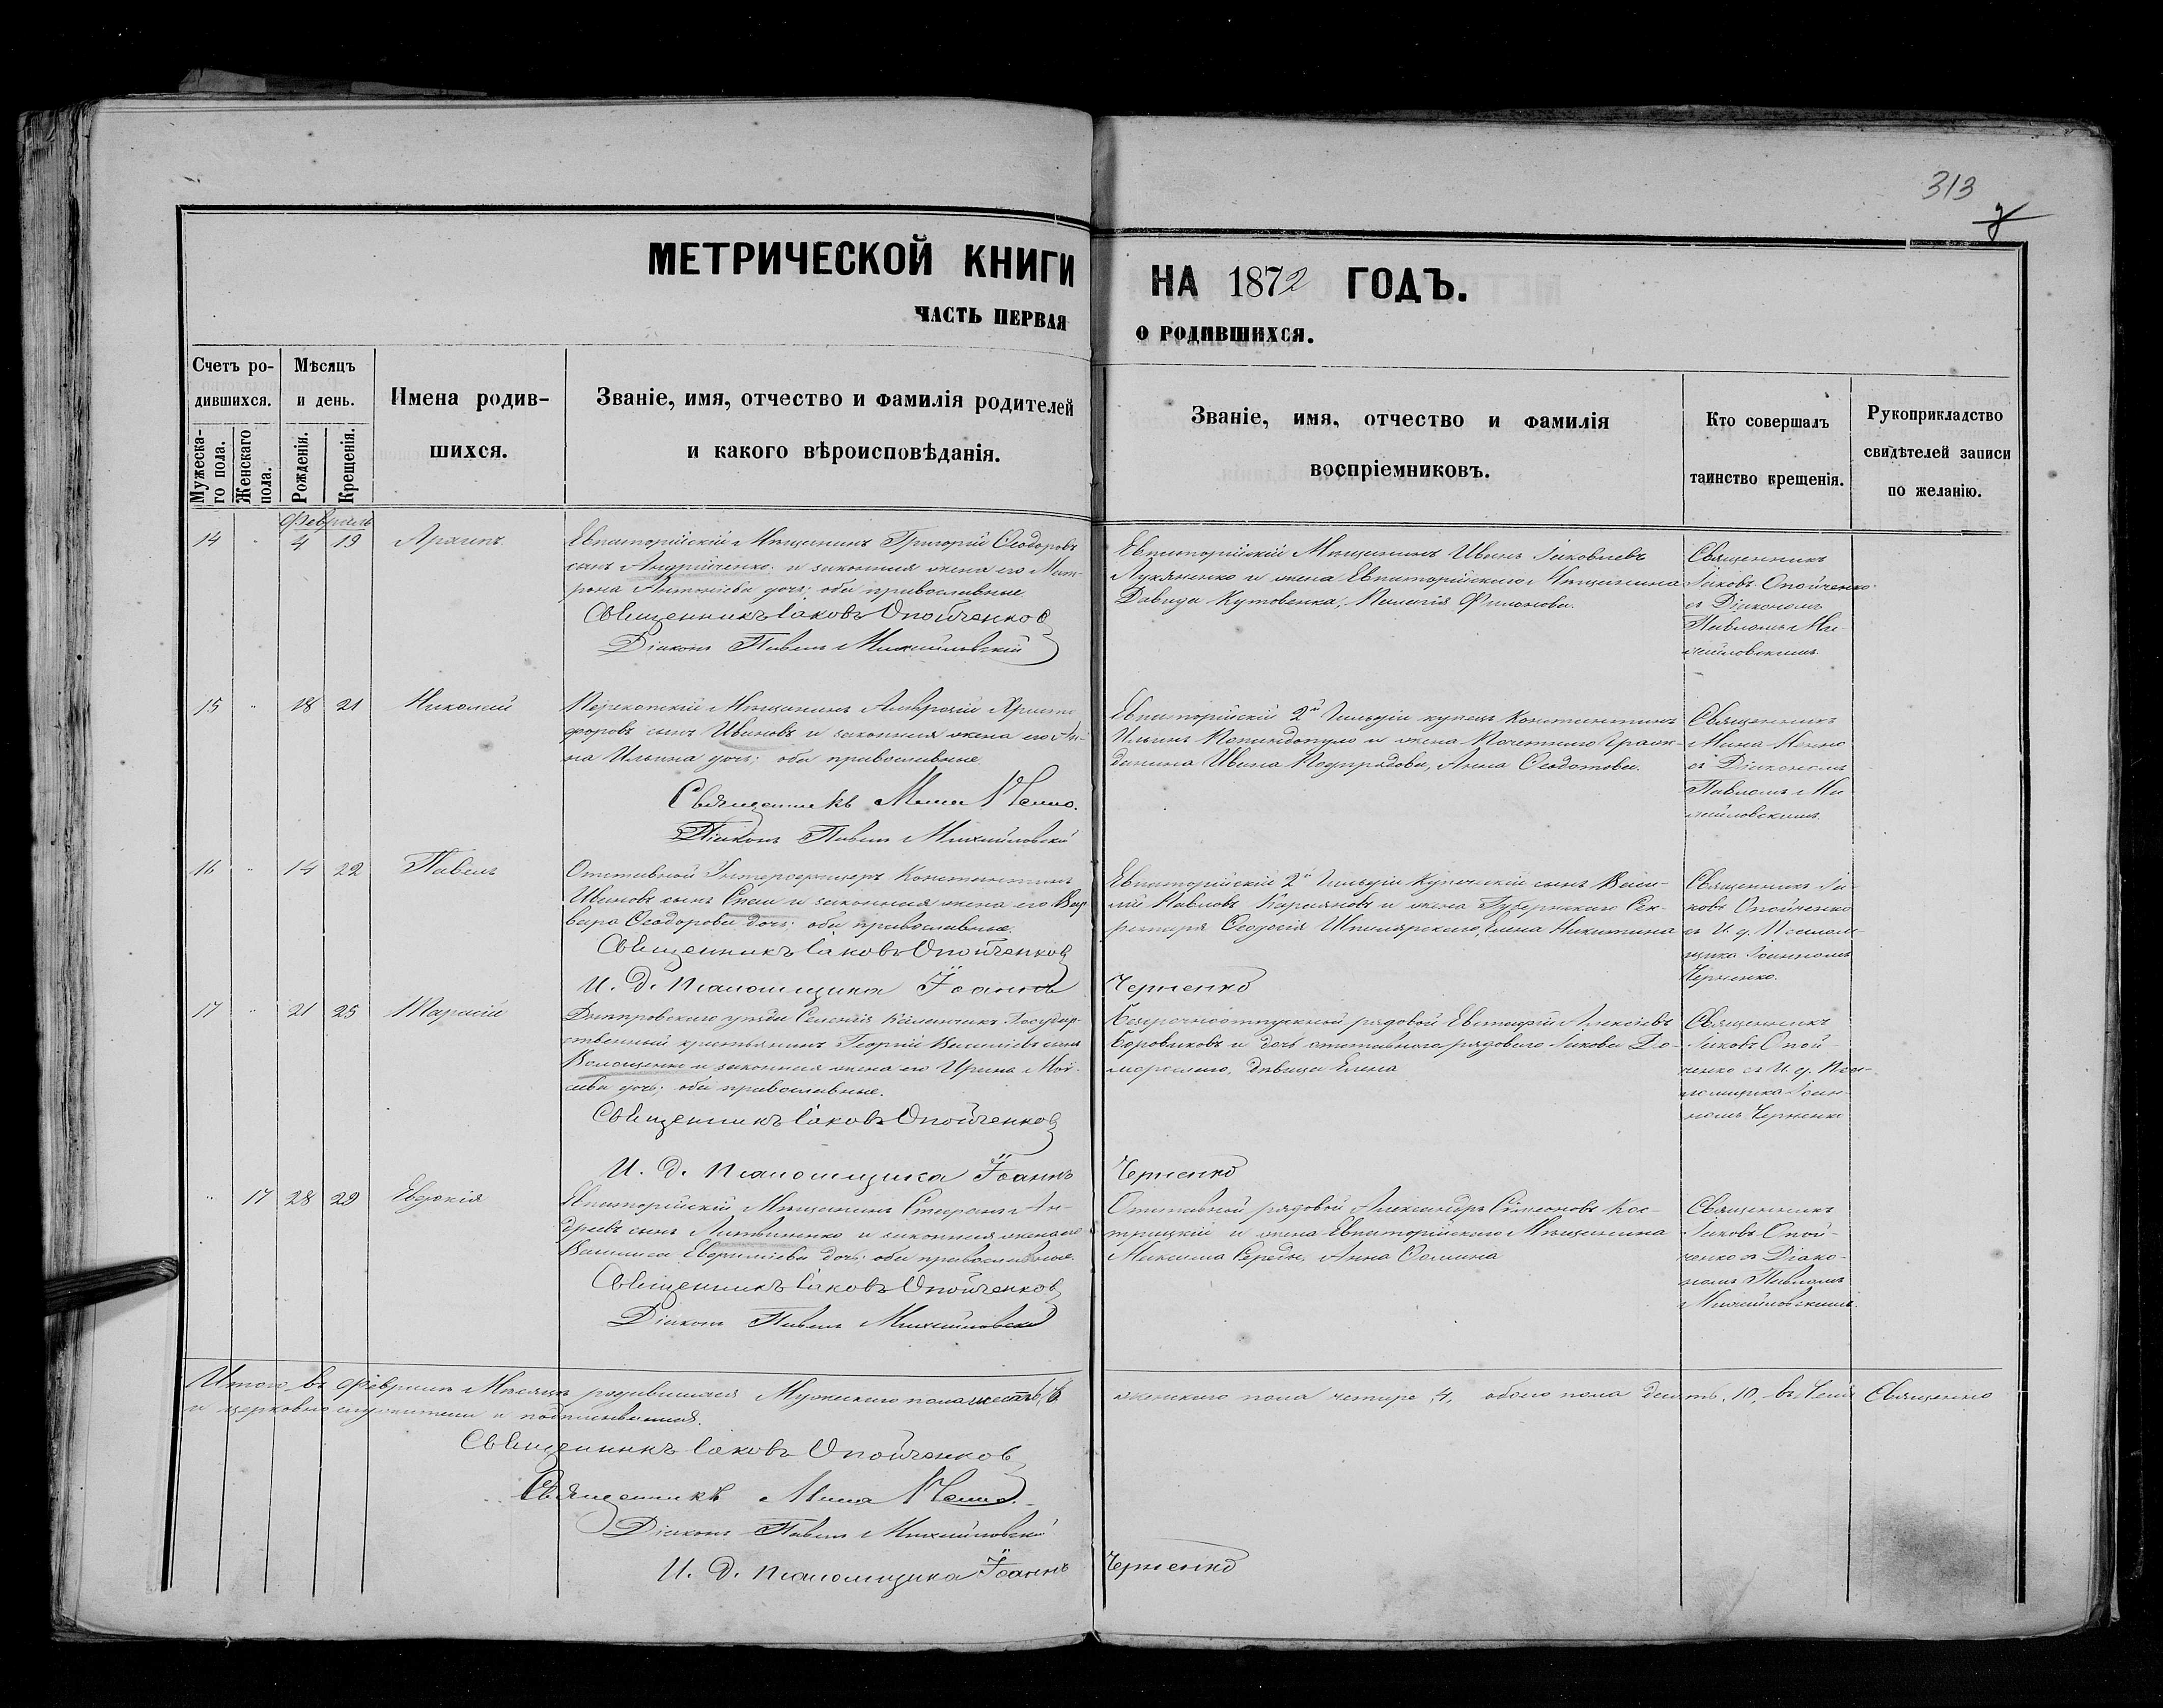 313
МЕТРИЧЕСКОЙ КНИГИ НА 1872 ГОДЪ.
ЧАСТЬ ПЕРВАЯ О РОДИВШИХСЯ.
Счетъ ро-
дившихся.
Мужеска-
го пола.
Женскаго
пола.
Мѣсяцъ
и день.
Рожденія.
Крещенія.
Имена родив-
шихся.
Званіе, имя, отчество и фамилія родителей
и какого вѣроисповѣданія.
Званіе, имя, отчество и фамилія
воспріемниковъ.
Кто совершалъ
таинство крещенія.
Рукоприкладство
свидѣтелей записи
по желанію.
Февраль
14 " 4 19
Евпаторійскій Мѣщанинъ Григорій Ѳеодоровъ
сынъ и законная жена его Мат-
рона Антоніева дочь; оба православные.
Священникъ Іаковъ Опойченко
Діаконъ Павелъ Михайловскій
Евпаторійскій Мѣщанинъ Иванъ Іаковлевъ
Лукяненко и жена Евпаторійскаго Мѣщанина
Давида Кутовенка, Пелагія Филонова.
Священникъ
Іаковъ Опойченко
съ Діакономъ
Павломъ Ми-
хайловскимъ.
15 " 18 21 Николай
Перекопскій Мѣщанинъ Амвросій Христо
форовъ сынъ Ивановъ и законная жена его Ан-
на Ильина дочь; оба православные.
Священникъ Мина
Діаконъ Павелъ Михайловскій
Евпаторійскій 2й Гильдіи купецъ Константинъ
Ильинъ Попандопуло и жена Почетнаго Граж-
данина Ивана Ѳеодотова.
Священникъ
Мина
съ Діакономъ
Павломъ Ми
хайловскимъ.
16 " 14 22 Павелъ
Отставной Унтерофицеръ Константинъ
Ивановъ сынъ и законная жена его Вар
вара Ѳеодорова дочь; оба православные.
Священникъ Іаковъ Опойченко
И. д. Псаломщика Іоаннъ Черненко
Евпаторійскій 2й Гильдіи Купеческій сынъ Васи-
лій Павловъ и жена Губернскаго Сек-
ретаря Ѳеодосія Елена Никитина
Священникъ Іа-
ковъ Опойченко
съ И. д. Псалом-
щика Іоанномъ
Черненко.
17 " 21 25 Тарасій
Днѣпровскаго уѣзда Селенія Государ-
ственный крестьянинъ Георгій Василіевъ сынъ
Волощенко и законная жена его Ирина Мои-
сеева дочь; оба православные.
Священникъ Іаковъ Опойченко
И. д. Псаломщика Іоаннъ Черненко
Безсрочноотпускной рядовой Евстафій Алексіевъ
Боровиковъ и дочь отставнаго рядового Іакова До-
девица Елена
Священникъ
Іаковъ Опой-
ченко съ И. д. Пса-
ломщика Іоан-
номъ Черненко
" 17 28 29 Евдокія
Евпаторійскій Мѣщанинъ Стефанъ Ан-
дреевъ сынъ Литвиненко и законная жена его
Василиса дочь; оба православные.
Священникъ Іаковъ Опойченко
Діаконъ Павелъ Михайловскій
Отставной рядовой Александръ Симеоновъ Кос-
трицкій и жена Евпаторійскаго Мѣщанина
Максима Середы, Анна Ѳомина
Священникъ
Іаковъ Опой-
ченко съ Діако-
номъ Павломъ
Михайловскимъ.
Итого въ Февралѣ Мѣсяцѣ родившихся Мужескаго пола шесть, 6, женскаго пола четыре, 4, обоего пола десять, 10, въ чемъ Священно
и церковно служители и подписываемся.
Священникъ Іаковъ Опойченко
Священникъ Мина
Діаконъ Павелъ Михайловскій
И. д. Псаломщика Іоаннъ Черненко